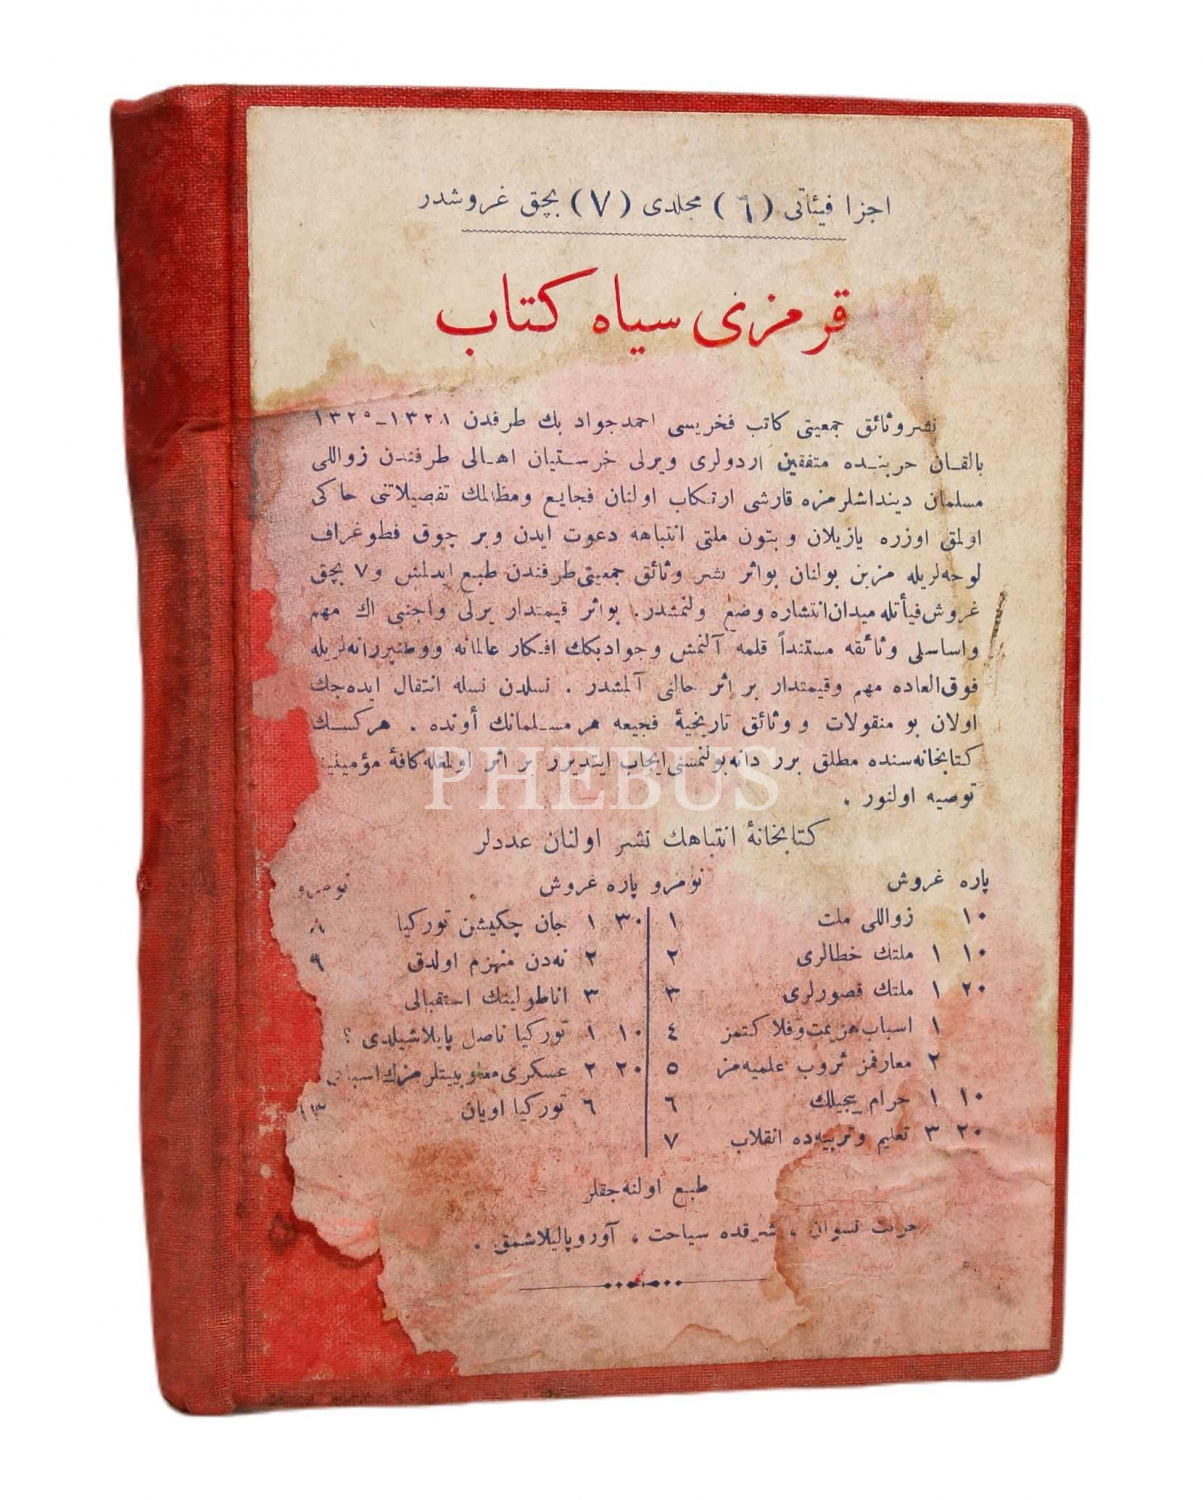 اجزا فیئاتی (٦) مجلدی (٧) بچق غروشدر
قرمزی سیاه كتاب
نشر وثائق جمعیتی كاتب فخریسی احمد جواد بك طرفدن ١٣٢٨-١٣٢٩
بالقـان حربنـده متفقین اردولری ویرلی خرسـتیان اهـالی طرفندن زواللی
مسلمان دینداشلرمزه قارشی ارتكاب اولنان فجایع ومظالمك تفصیلاتنی حاكی
اولمق اوزره یازیلان وبتون ملتی انتباهه دعوت ایدن وبر چوق فطوغراف
لوحه‌لریله مزین بولنان بواثر نشر وثائق جمعیتی طرفندن طبع ایدلمش و٧ بچق
غروش فیأتله میدان انتشاره وضع اولنمشدر. بواثر قیمتدار یرلی واجنبی اك مهم
واساسلی وثائقه مستنداً قلمه آلنمش وجوادبكك افـكار عالمانه ووطنپررانه‌لریله
فوق‌العاده مهم وقیمتدار بر اثر حالنی آلمشدر . نسلدن نسله انتقال ایده‌جك
اولان بو منقولات و وثائق تاریخیهٔ فجیعه هر مسـلمانك أونده . هركسـك
كتابخانه‌سنده مطلق برر دانه بولنمسنی ایجاب ایتدیرر بر اثر اولمغله كافهٔ مؤمنینه
توصیه اولنور .
PHEBUS
كتابخانهٔ انتباهك نشر اولنان عددلر
پاره غروش نومرو پاره غروش نومرو
١٠ زواللی ملت ١
١٠ ١ ملتك خطالری ٢
٢٠ ١ ملتك قصورلری ٣
١ اسباب هزیمت وفلاكتمز ٤
٢ معارفمز ثروب علمیه‌مز ٥
١٠ ١ حرام ییجیلك ٦
٢٠ ٣ تعلیم وتربیه‌ده انقلاب ٧
٣٠ ١ جان چكیشن توركیا ٨
٢ نه‌دن منهزم اولدق ٩
٣ اناطولینك استقبالی
١٠ ١ توركیا ناصل پایلاشیلدی ؟
٢٠ ٢ عسكری مغلوبیتلرمزك اسبابی
٦ توركیا اویان ١٣
طبع اولنه‌جقلر
حریت نسوان ، شرقده سیاحت ، آوروپالیلاشمق .